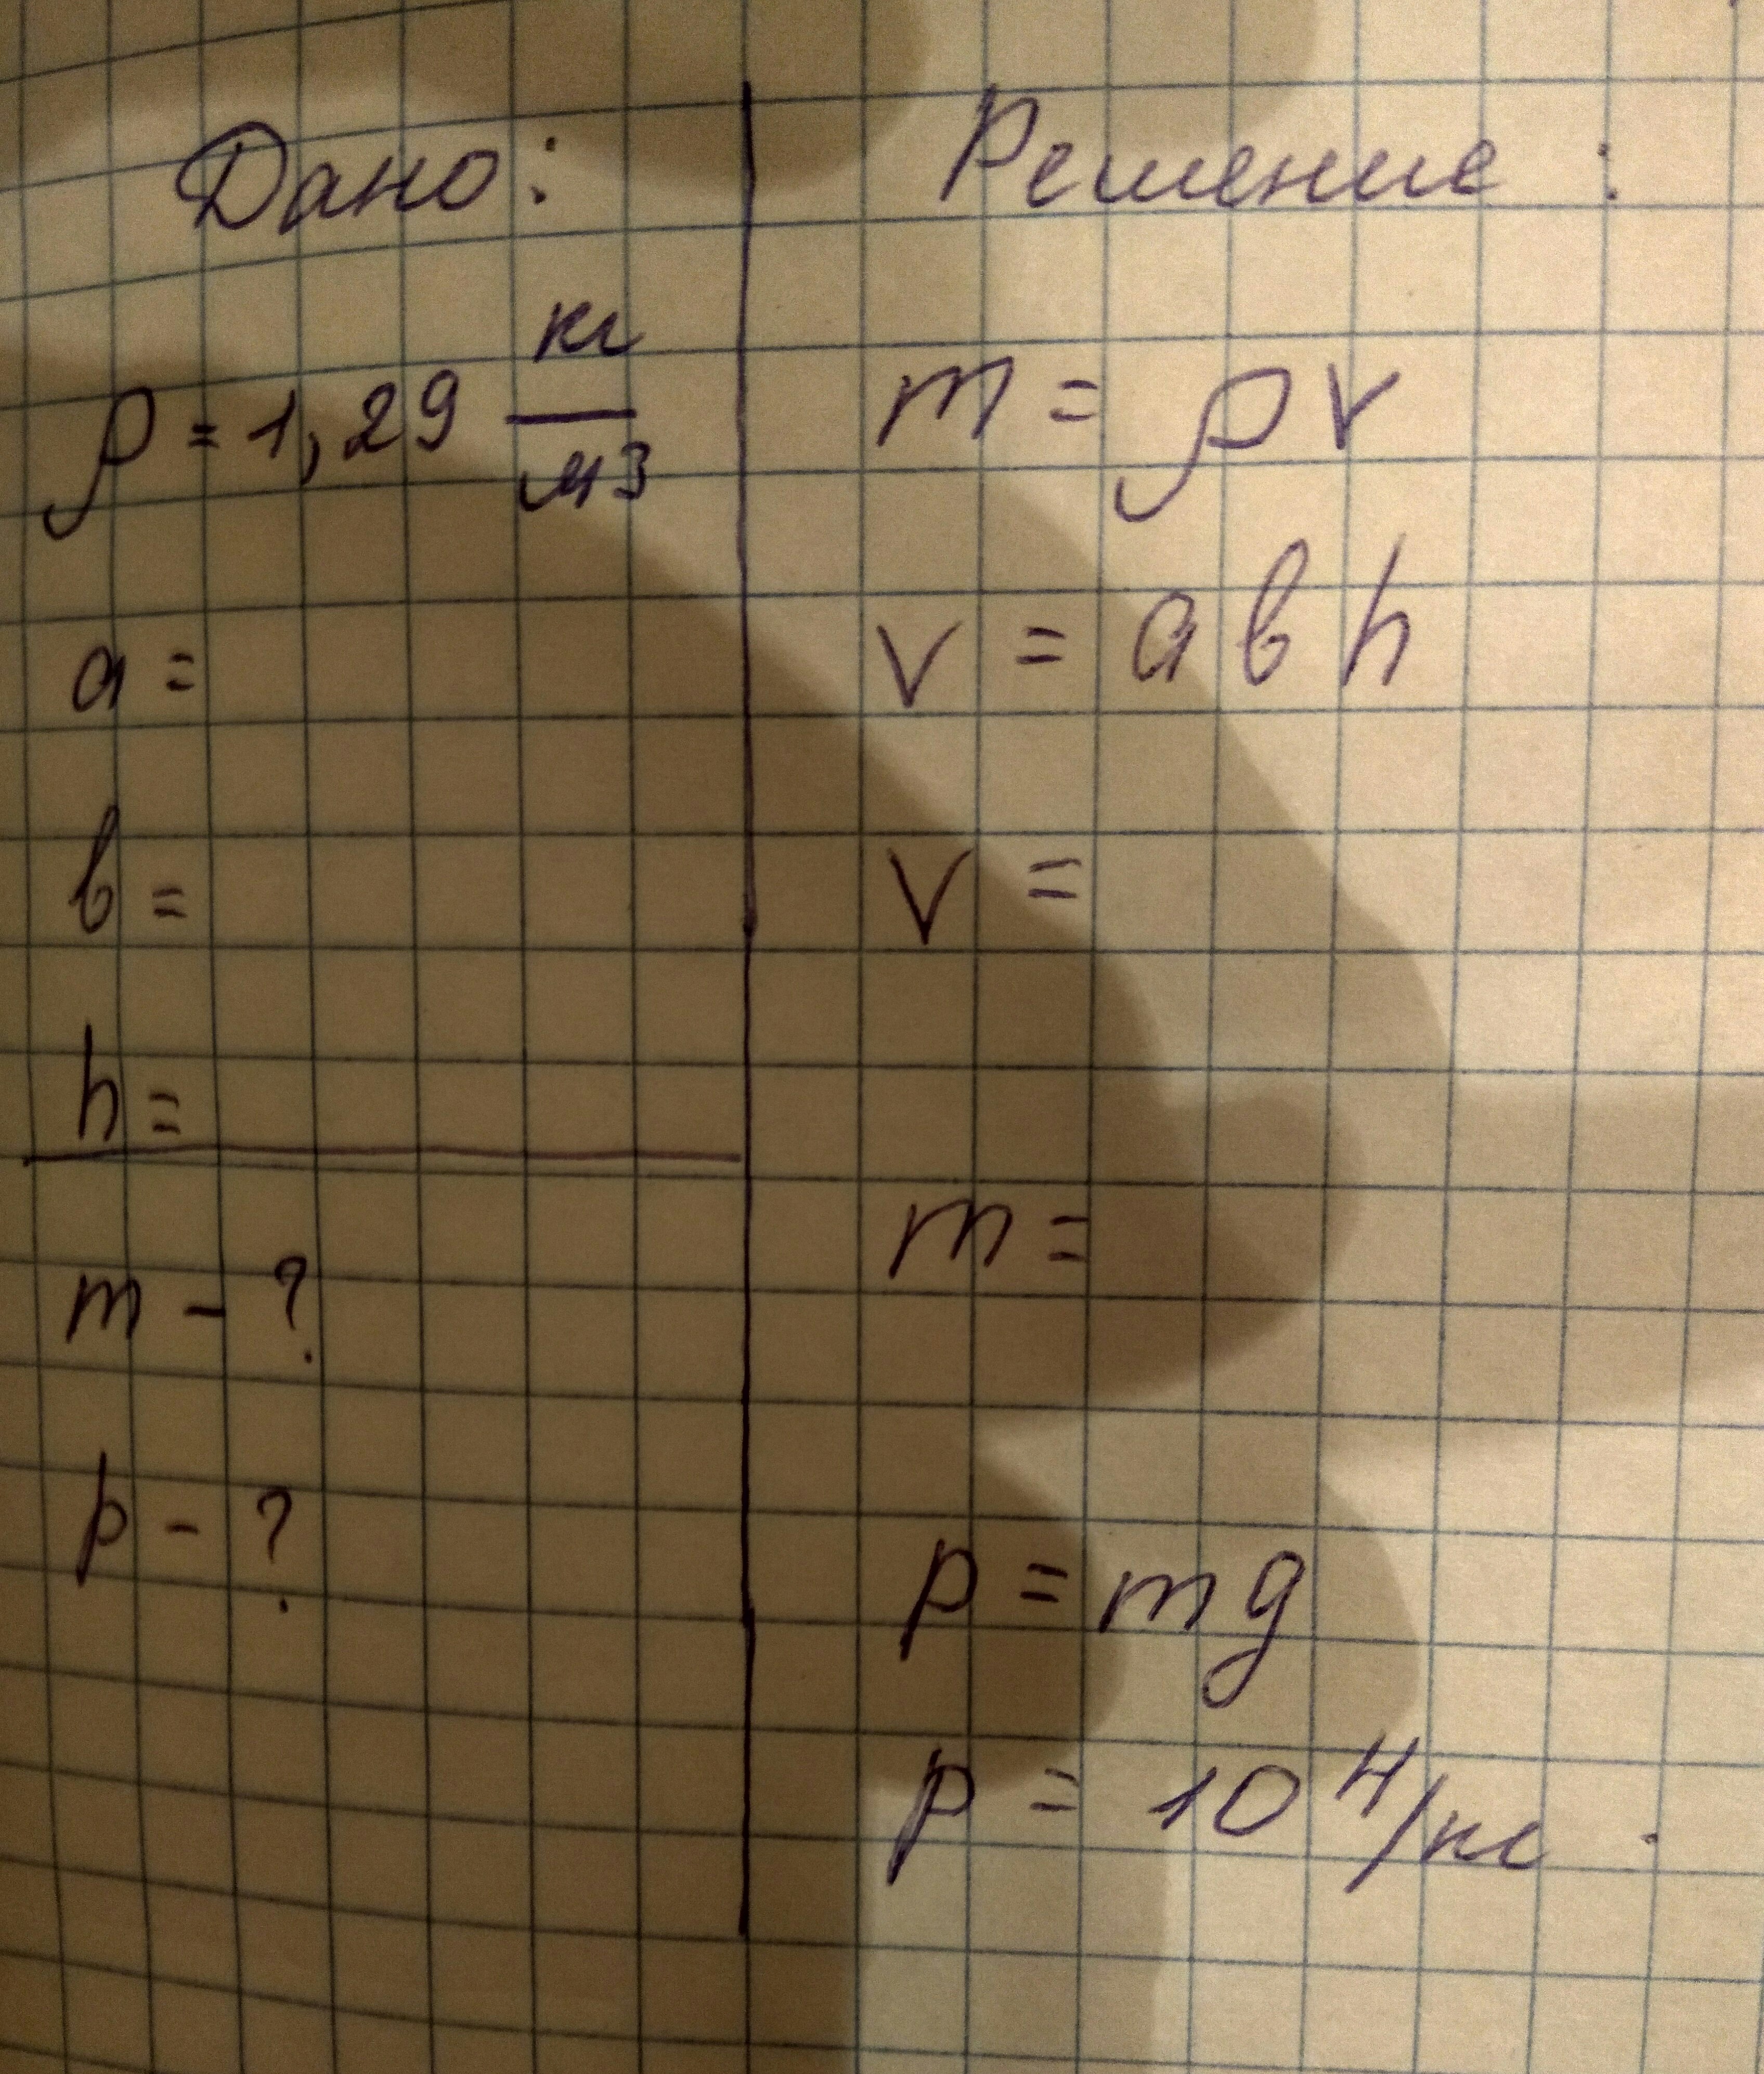 Дано:
ρ = 1,29 кг/м3
a =
b =
h =
m - ?
p - ?
Решение :
m = ρ v
v = a b h
V =
m =
p = m g
p = 10 Н/кг .